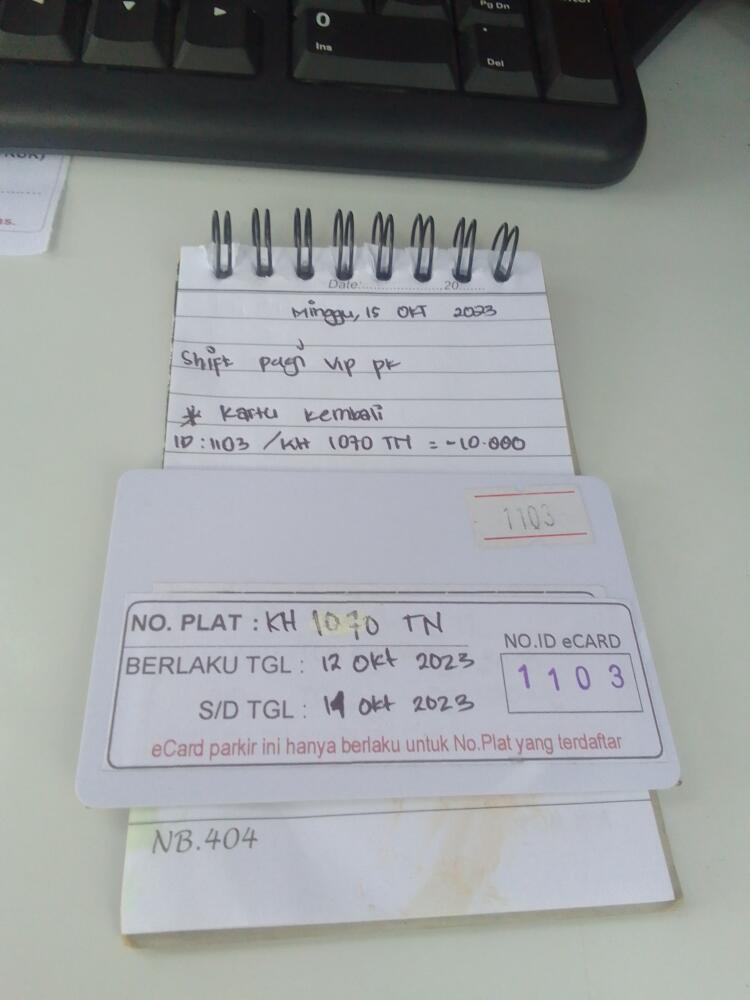 0
Ins
Pg Dn
.
Del
s.
Date:......................20......
Minggu, 15 OKT 2023
Shift pagi VIP pk
* Kartu kembali
ID : 1103 / KH 1070 TN = -10.000
1103
NO. PLAT : KH 1070 TN
BERLAKU TGL : 12 Okt 2023
S/D TGL : 14 Okt 2023
NO.ID eCARD
1103
eCard parkir ini hanya berlaku untuk No.Plat yang terdaftar
NB.404